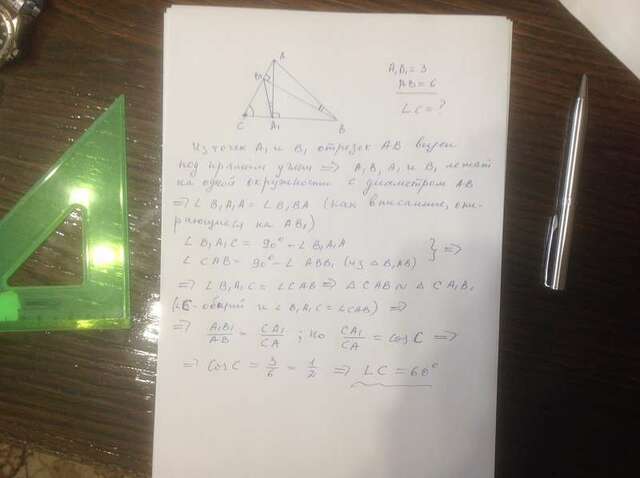 A
B₁
C
A₁
B
A₁B₁ = 3
AB = 6
∠C = ?
Из точек A₁ и B₁ отрезок AB виден
под прямым углом ⇒ A, B, A₁ и B₁ лежат
на одной окружности с диаметром AB
⇒ ∠ B₁A₁A = ∠ B₁BA (как вписанные, опи-
рающиеся на AB₁)
∠ B₁A₁C = 90° − ∠ B₁A₁A
∠ CAB = 90° − ∠ ABB₁ (из △ B₁AB) } ⇒
⇒ ∠ B₁A₁C = ∠CAB ⇒ △ CAB ∾ △ CA₁B₁
(∠C-общий и ∠ B₁A₁C = ∠CAB) ⇒
⇒ A₁B₁/AB = CA₁/CA ; но CA₁/CA = cos C ⇒
⇒ cos C = 3/6 = 1/2 ⇒ ∠C = 60°